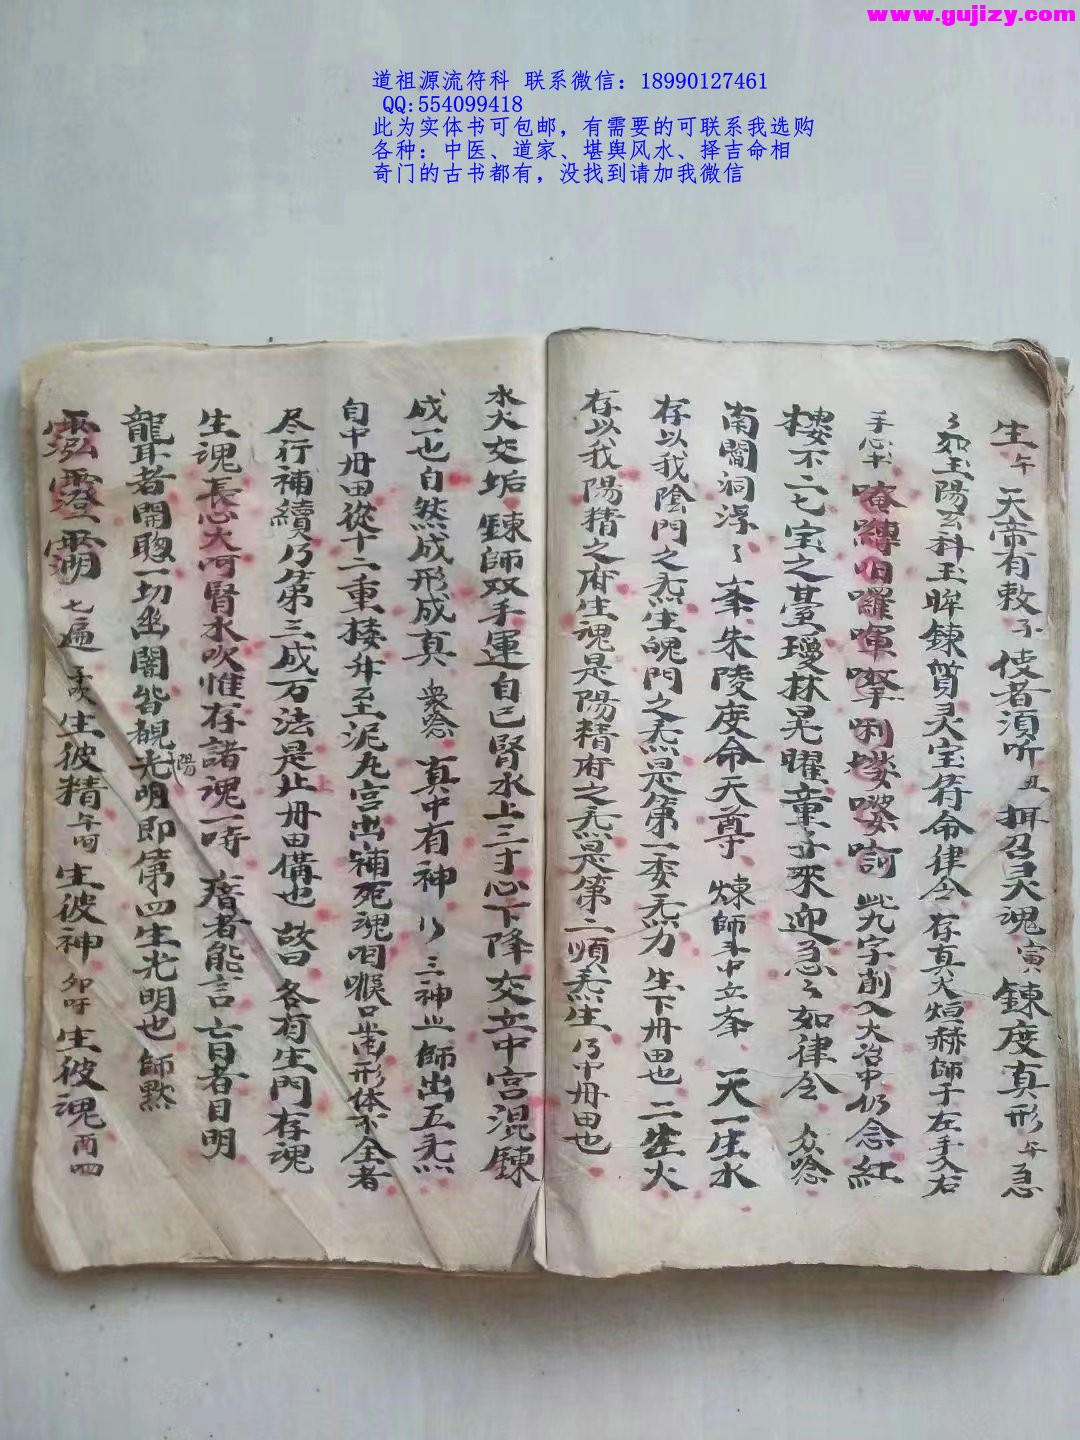 www.gujizy.com
道祖源流符科 联系微信：18990127461
QQ:554099418
此为实体书可包邮，有需要的可联系我选购
各种：中医、道家、堪舆风水、择吉命相
奇门的古书都有，没找到请加我微信
生 午 天帝有敕 子 使者須听 丑 召灵魂 寅 鍊度真形 午 急
玉陽玄科玉眸鍊質灵宝符命律令 存真火烜赫師于左手入右
手心 唵 囉 唎 此九字削入大冶中仍念紅
楼不二七宝之臺瓊林晃曜童子來迎急々如律令 众唸
南閣洞浮々 奉 朱陵度命天尊 煉師 中立奉 天一生水
存以我陰門之炁生魄門之炁是第一委炁力 生下丹田也 二生火
存以我陽精之府生魂是陽精府之炁是第二順炁生乃中丹田也
水火交垢 鍊師双手運自己腎水上三寸心下降交立中宮混鍊
成一也自然成形成真 衆唸 真中有神 乃三神也師出五炁
自中丹田從十二重楼升至泥丸宮出補死魂咽喉口齒形体不全者
尽行補續乃第三成万法是上丹田備也 故曰各有生門存魂
生魂長心大呵腎水吹惟存諸魂一時陽 瘖者能言盲者目明
龍耳者開聰一切幽闇皆覩光明即儔第四生光明也 師黙
七遍 子吹 生彼精 午呵 生彼神 卯吁 生彼魂 酉呬